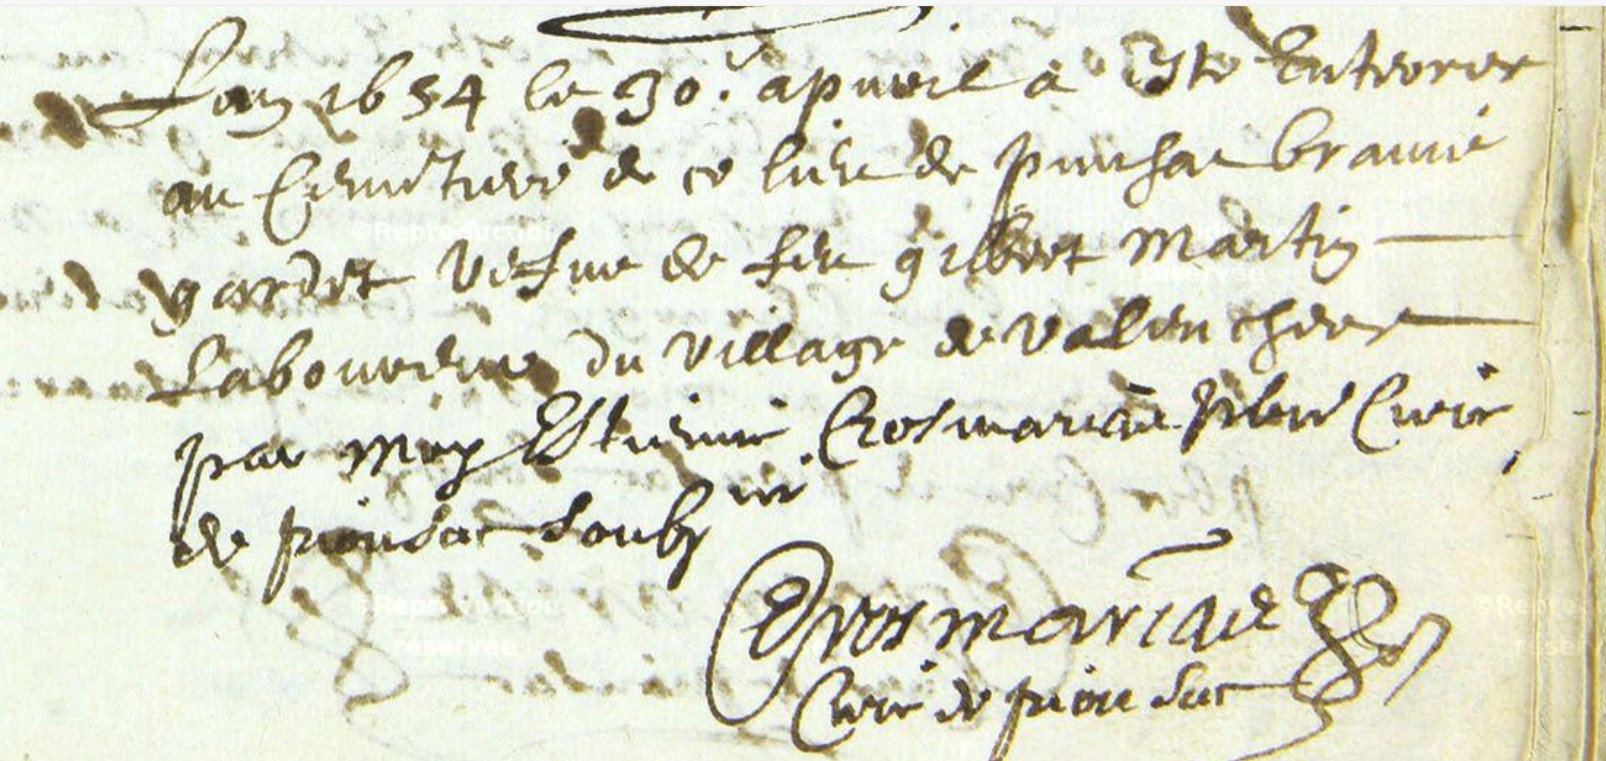 Lan 1654 le 30.e apvril a este Enterrer
au Cemetiere de ce lieu de pionsat
gardet vefve de feu gilbert martin
Laboureur du village de valencheres
par moy Estienne Crosmarie pbre Curé
de pionsat soubz
Crosmarie
Curé de pionsat